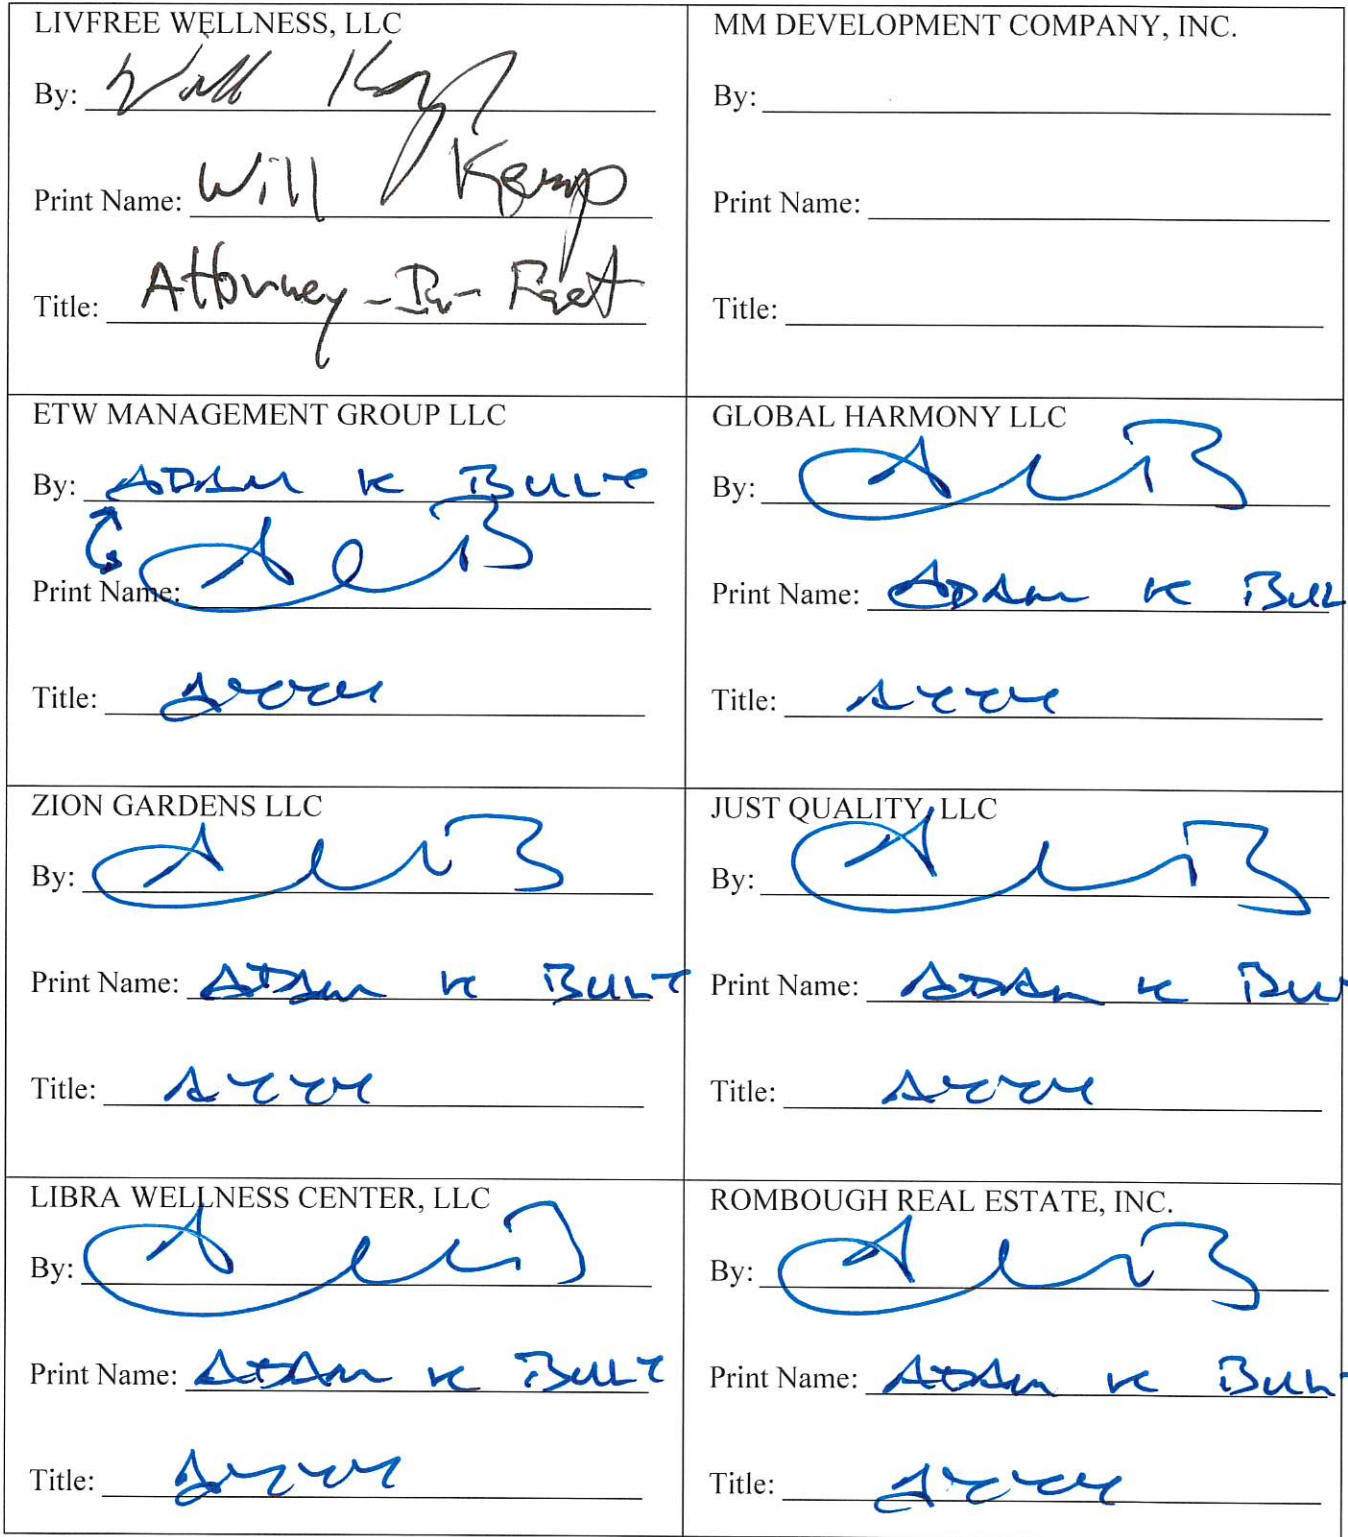 LIVFREE WELLNESS, LLC
By: Will Kemp
Print Name: Will Kemp
Title: Attorney-In-Fact
MM DEVELOPMENT COMPANY, INC.
By:
Print Name:
Title:
ETW MANAGEMENT GROUP LLC
By: ADAM K BULT
Print Name:
Title:
GLOBAL HARMONY LLC
By:
Print Name: ADAM K BUL
Title:
ZION GARDENS LLC
By:
Print Name: ADAM K BULT
Title:
JUST QUALITY, LLC
By:
Print Name: ADAM K BUL
Title:
LIBRA WELLNESS CENTER, LLC
By:
Print Name: ADAM K BULT
Title:
ROMBOUGH REAL ESTATE, INC.
By:
Print Name: ADAM K BULT
Title: